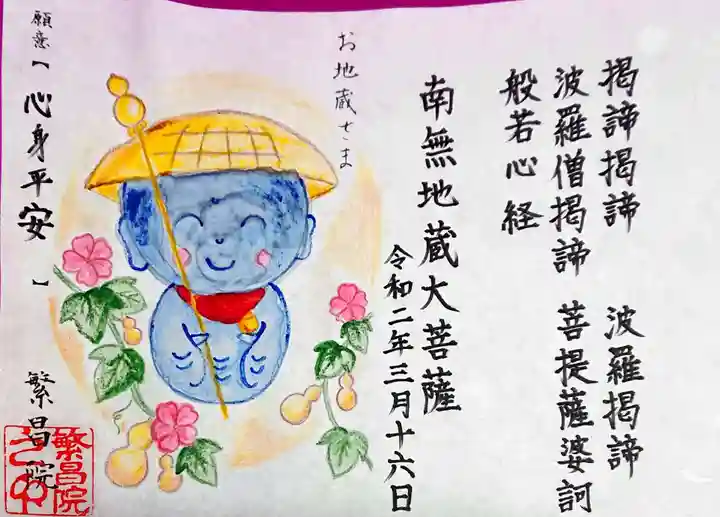 揭諦揭諦 波羅揭諦
波羅僧揭諦 菩提薩婆訶
般若心経
南無地蔵大菩薩
令和二年三月十六日
お地蔵さま
願意【 心身平安 】 繁昌院
繁昌院